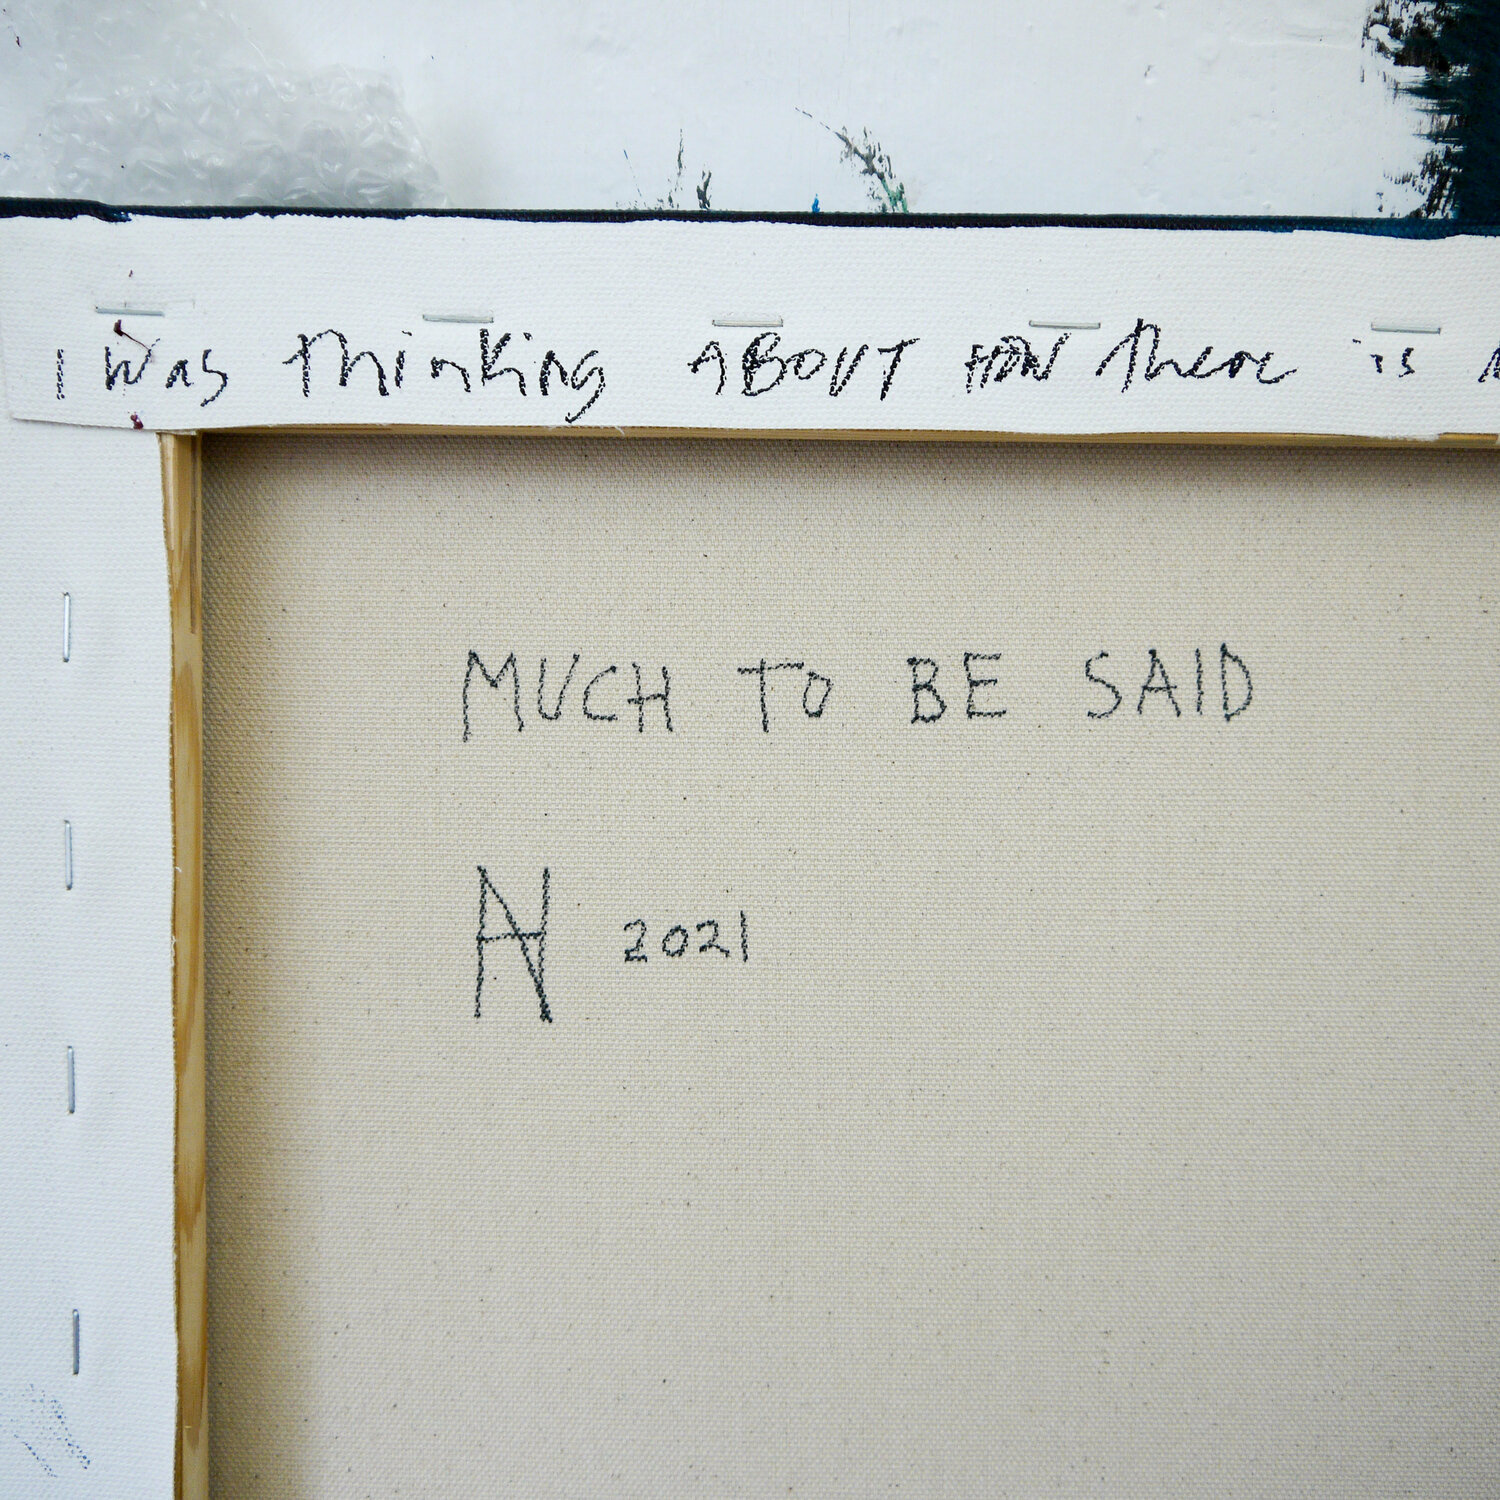 I was thinking ABOUT HOW there is
MUCH TO BE SAID
AN 2021